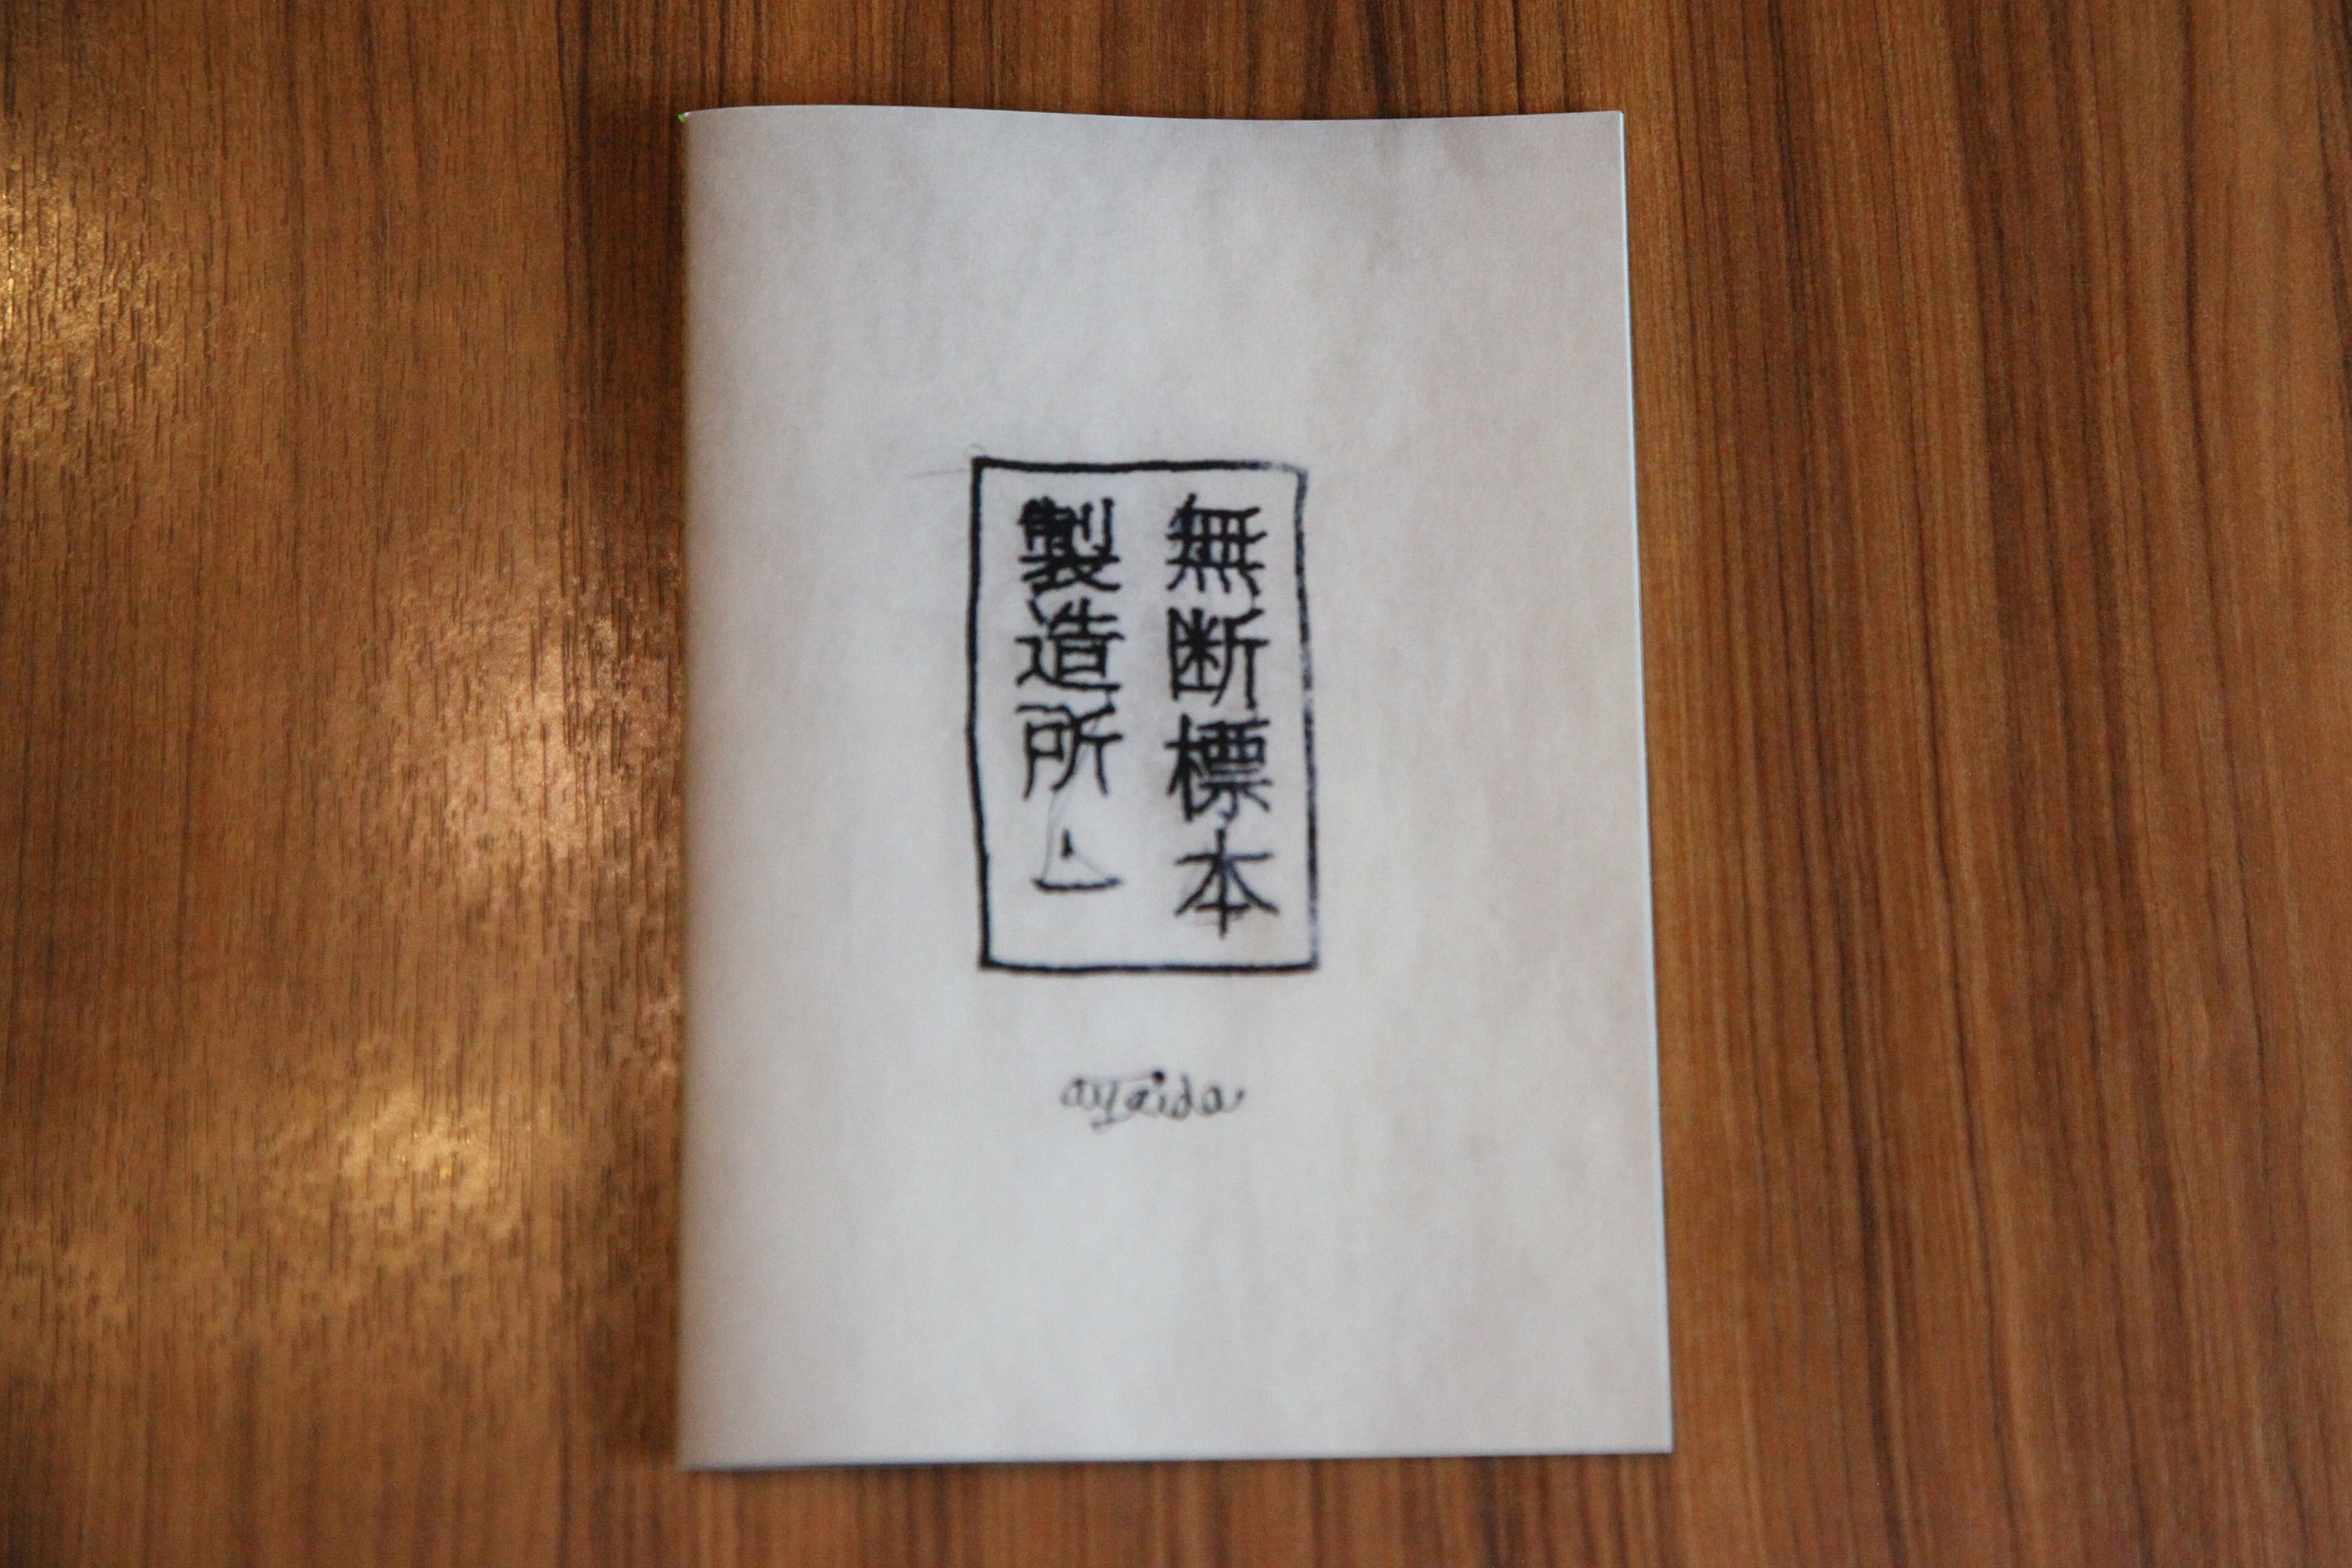 無断標本
製造所